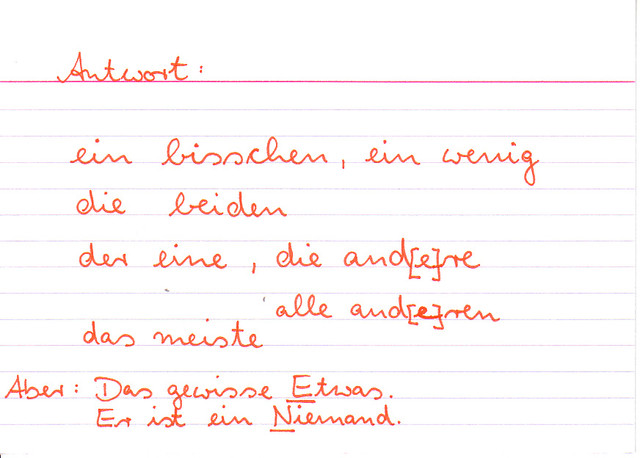 Antwort:
ein bisschen, ein wenig
die beiden
der eine, die and[e]re
alle and[e]ren
das meiste
Aber: Das gewisse Etwas.
Er ist ein Niemand.